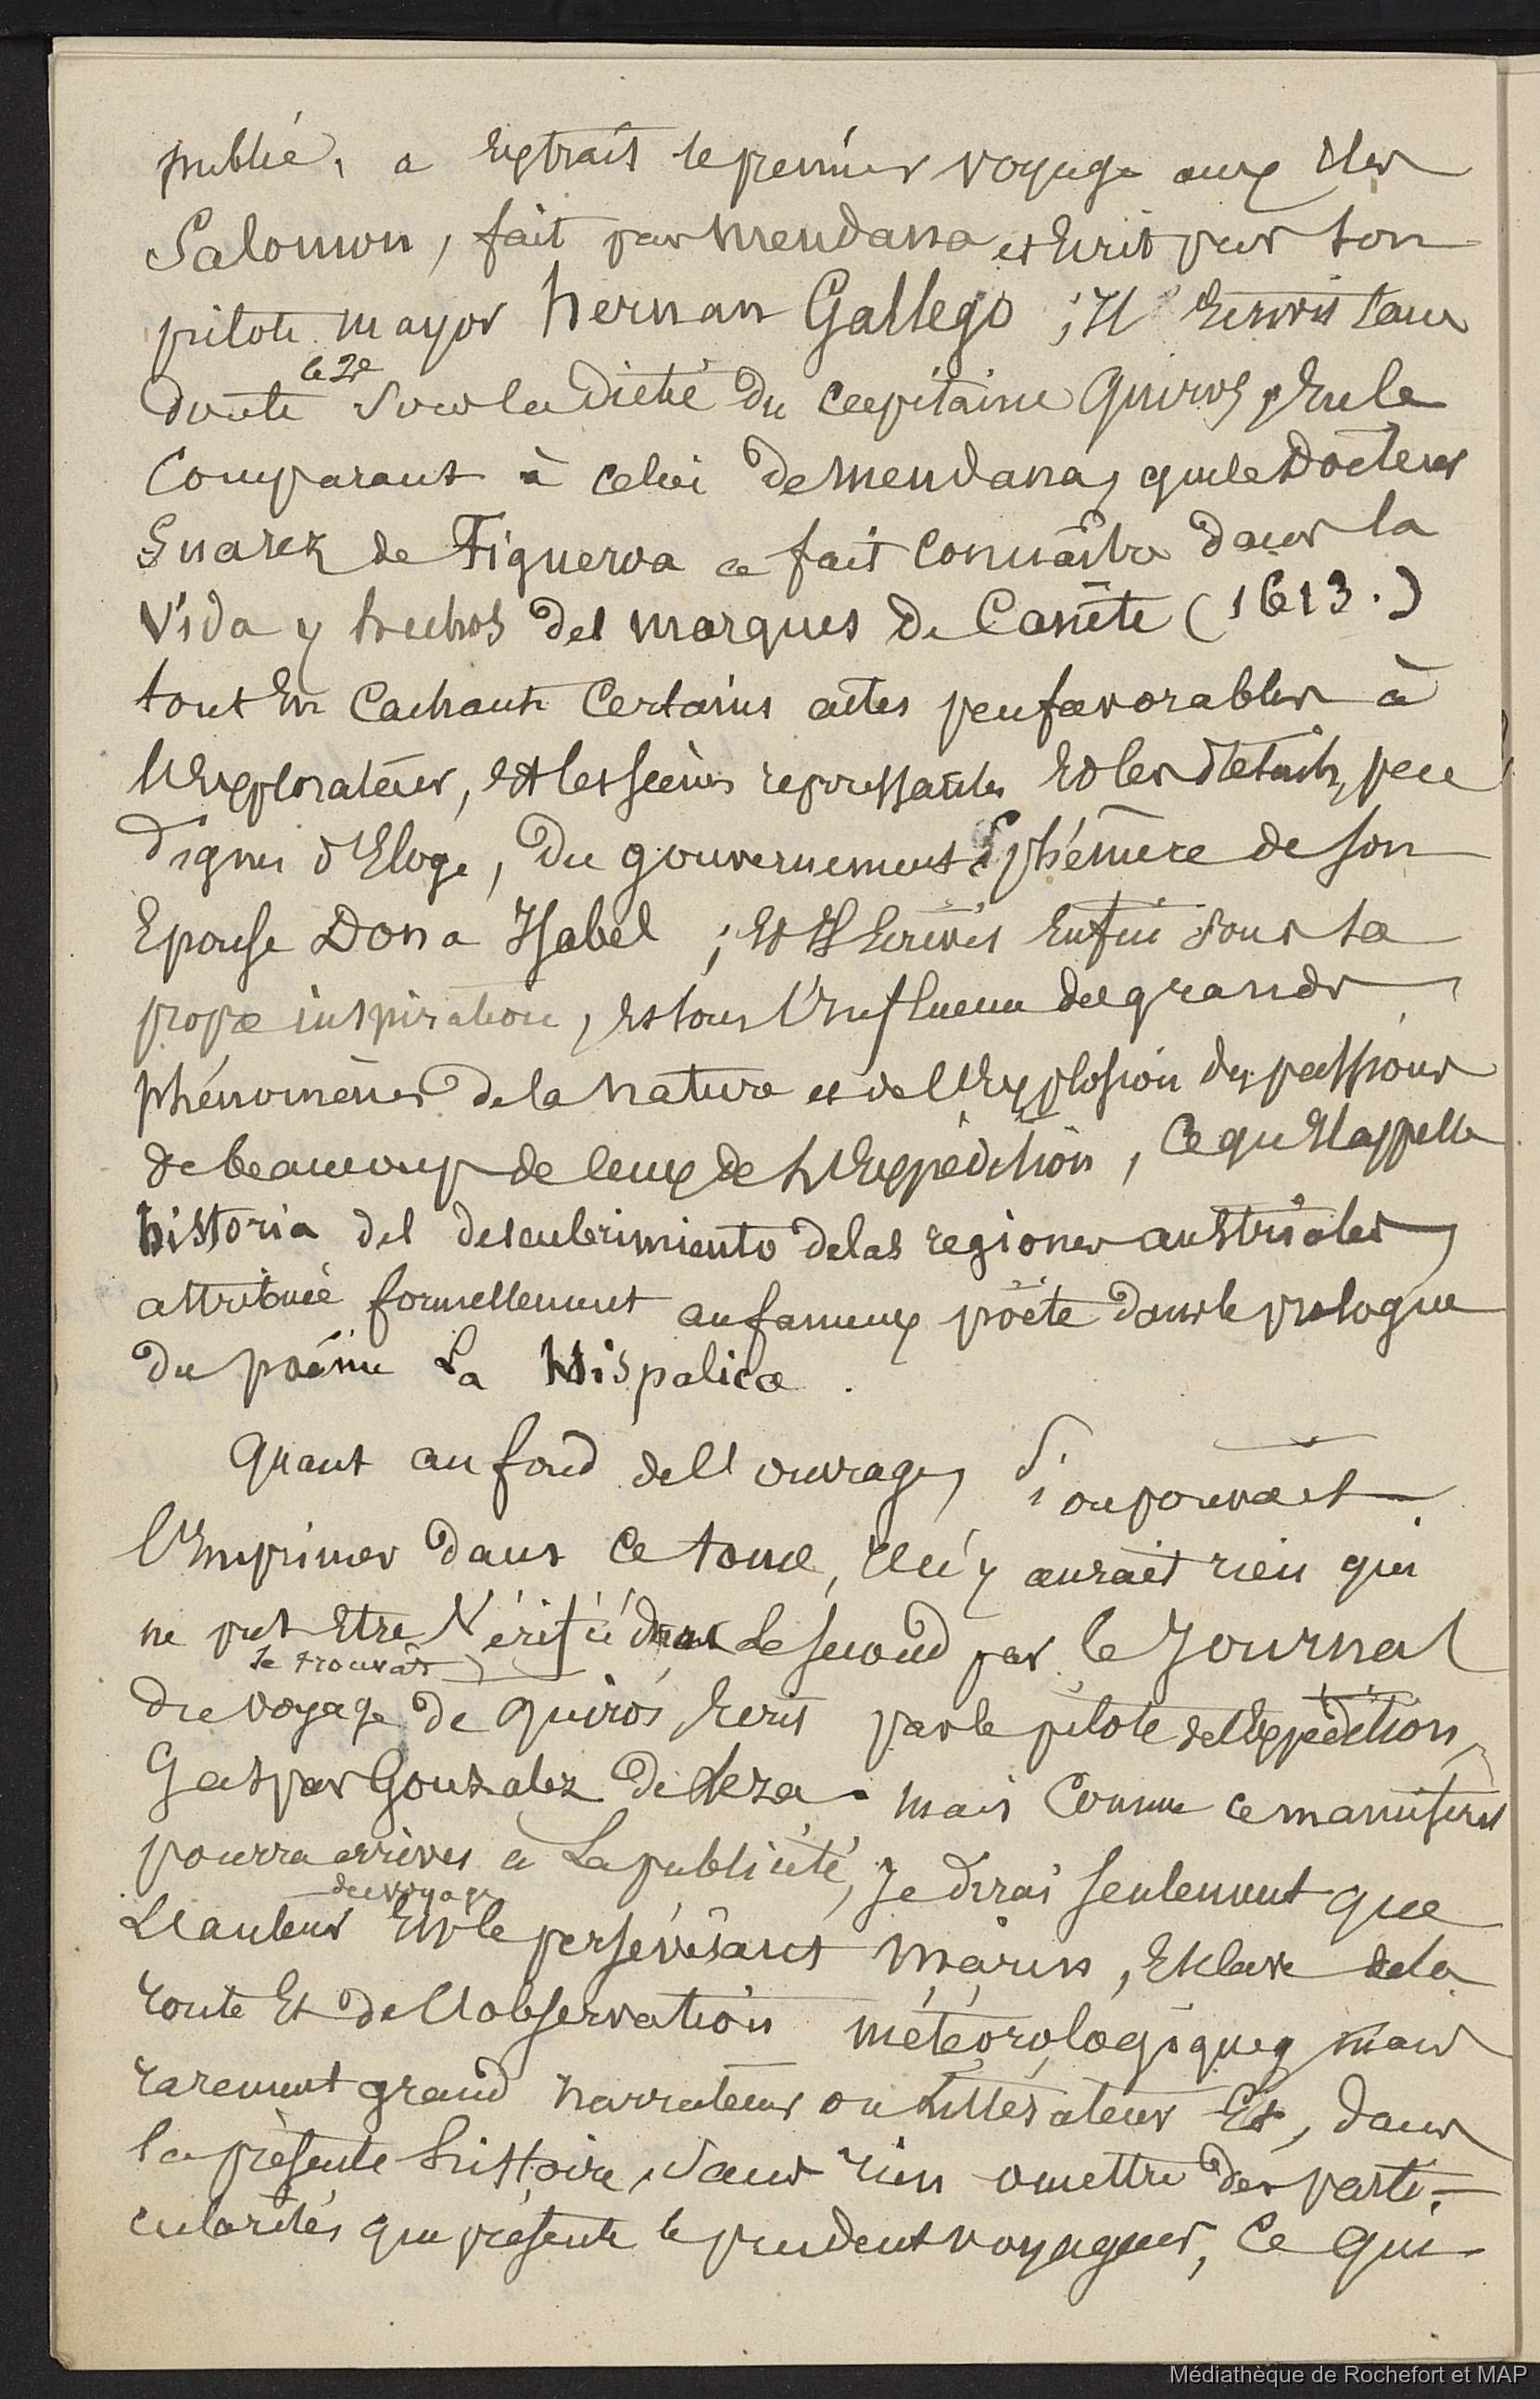 publié, a Extrait le premier voyage aux Iles
Salomon, fait par Mendana et Ecrit par son
pilote mayor hernan Gallego ; Il Ecrivit sans
doute le 2e sous la dictée du capitaine Quiros, En le
Comparant à celui de Mendana, que le Docteur
Suarez de Figueroa a fait connaître dans la
Vida y hechos del marques de Canete (1613.)
tout En Cachant Certains actes peu favorables à
l'Explorateur, Et les scènes repoussantes Et les détails, peu
dignes d'Eloge, du gouvernement Ephémère de son
Epouse Dona Isabel ; Et Il Ecrivit Enfin sous sa
propre inspiration, Et sous l'Influence des grands
phénomènes de la nature et de l'Explosion des passions
de beaucoup de ceux de l'Expédition, Ce qu'Il appelle
historia del descubrimiento de las regiones austriales,
attribuée formellement au fameux poëte dans le prologue
du poëme La Hispalica.
Quant au fond de l'ouvrage, Si on pouvait
l'Imprimer dans ce tome, Il n'y aurait rien qui
ne put Etre Vérifié dans le second par le Journal
se trouvât
du voyage de Quiros, Ecrit par le pilote de l'Expédition,
Gaspar Gonzalez de Leza. mais Comme ce manuscrit
pourra arriver à La publicité, Je dirai seulement que
L'auteur du voyage Est le persévérant marin, Esclave de la
route Et de l'observation météorologique, mais
rarement grand narrateur ou Littérateur Et, dans
la présente histoire, Sans rien omettre des parti-
cularités que présente le prudent voyageur, Ce qui
Médiathèque de Rochefort et MAP